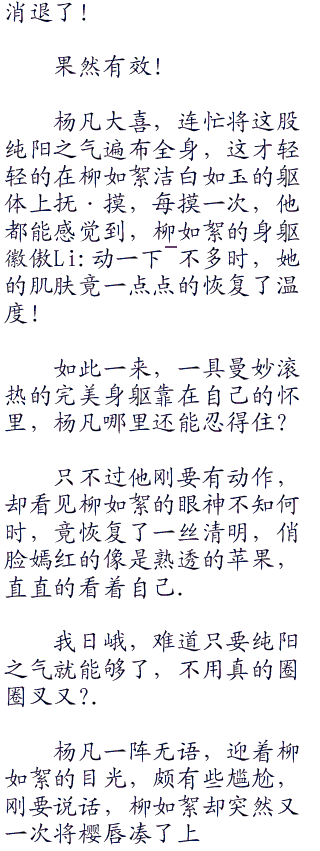 消退了!
果然有效!
杨凡大喜，连忙将这股
纯阳之气遍布全身，这才轻
轻的在柳如絮洁白如玉的躯
体上抚·摸，每摸一次，他
都能感觉到，柳如絮的身躯
徽傲Li:动一下¯不多时，她
的肌肤竟一点点的恢复了温
度!
如此一来，一具曼妙滚
热的完美身躯靠在自己的怀
里，杨凡哪里还能忍得住?
只不过他刚要有动作，
却看见柳如絮的眼神不知何
时，竟恢复了一丝清明，俏
脸嫣红的像是熟透的苹果，
直直的看着自己.
我日峨，难道只要纯阳
之气就能够了，不用真的圈
圈叉叉?.
杨凡一阵无语，迎着柳
如絮的目光，颇有些尴尬，
刚要说话，柳如絮却突然又
一次将樱唇凑了上